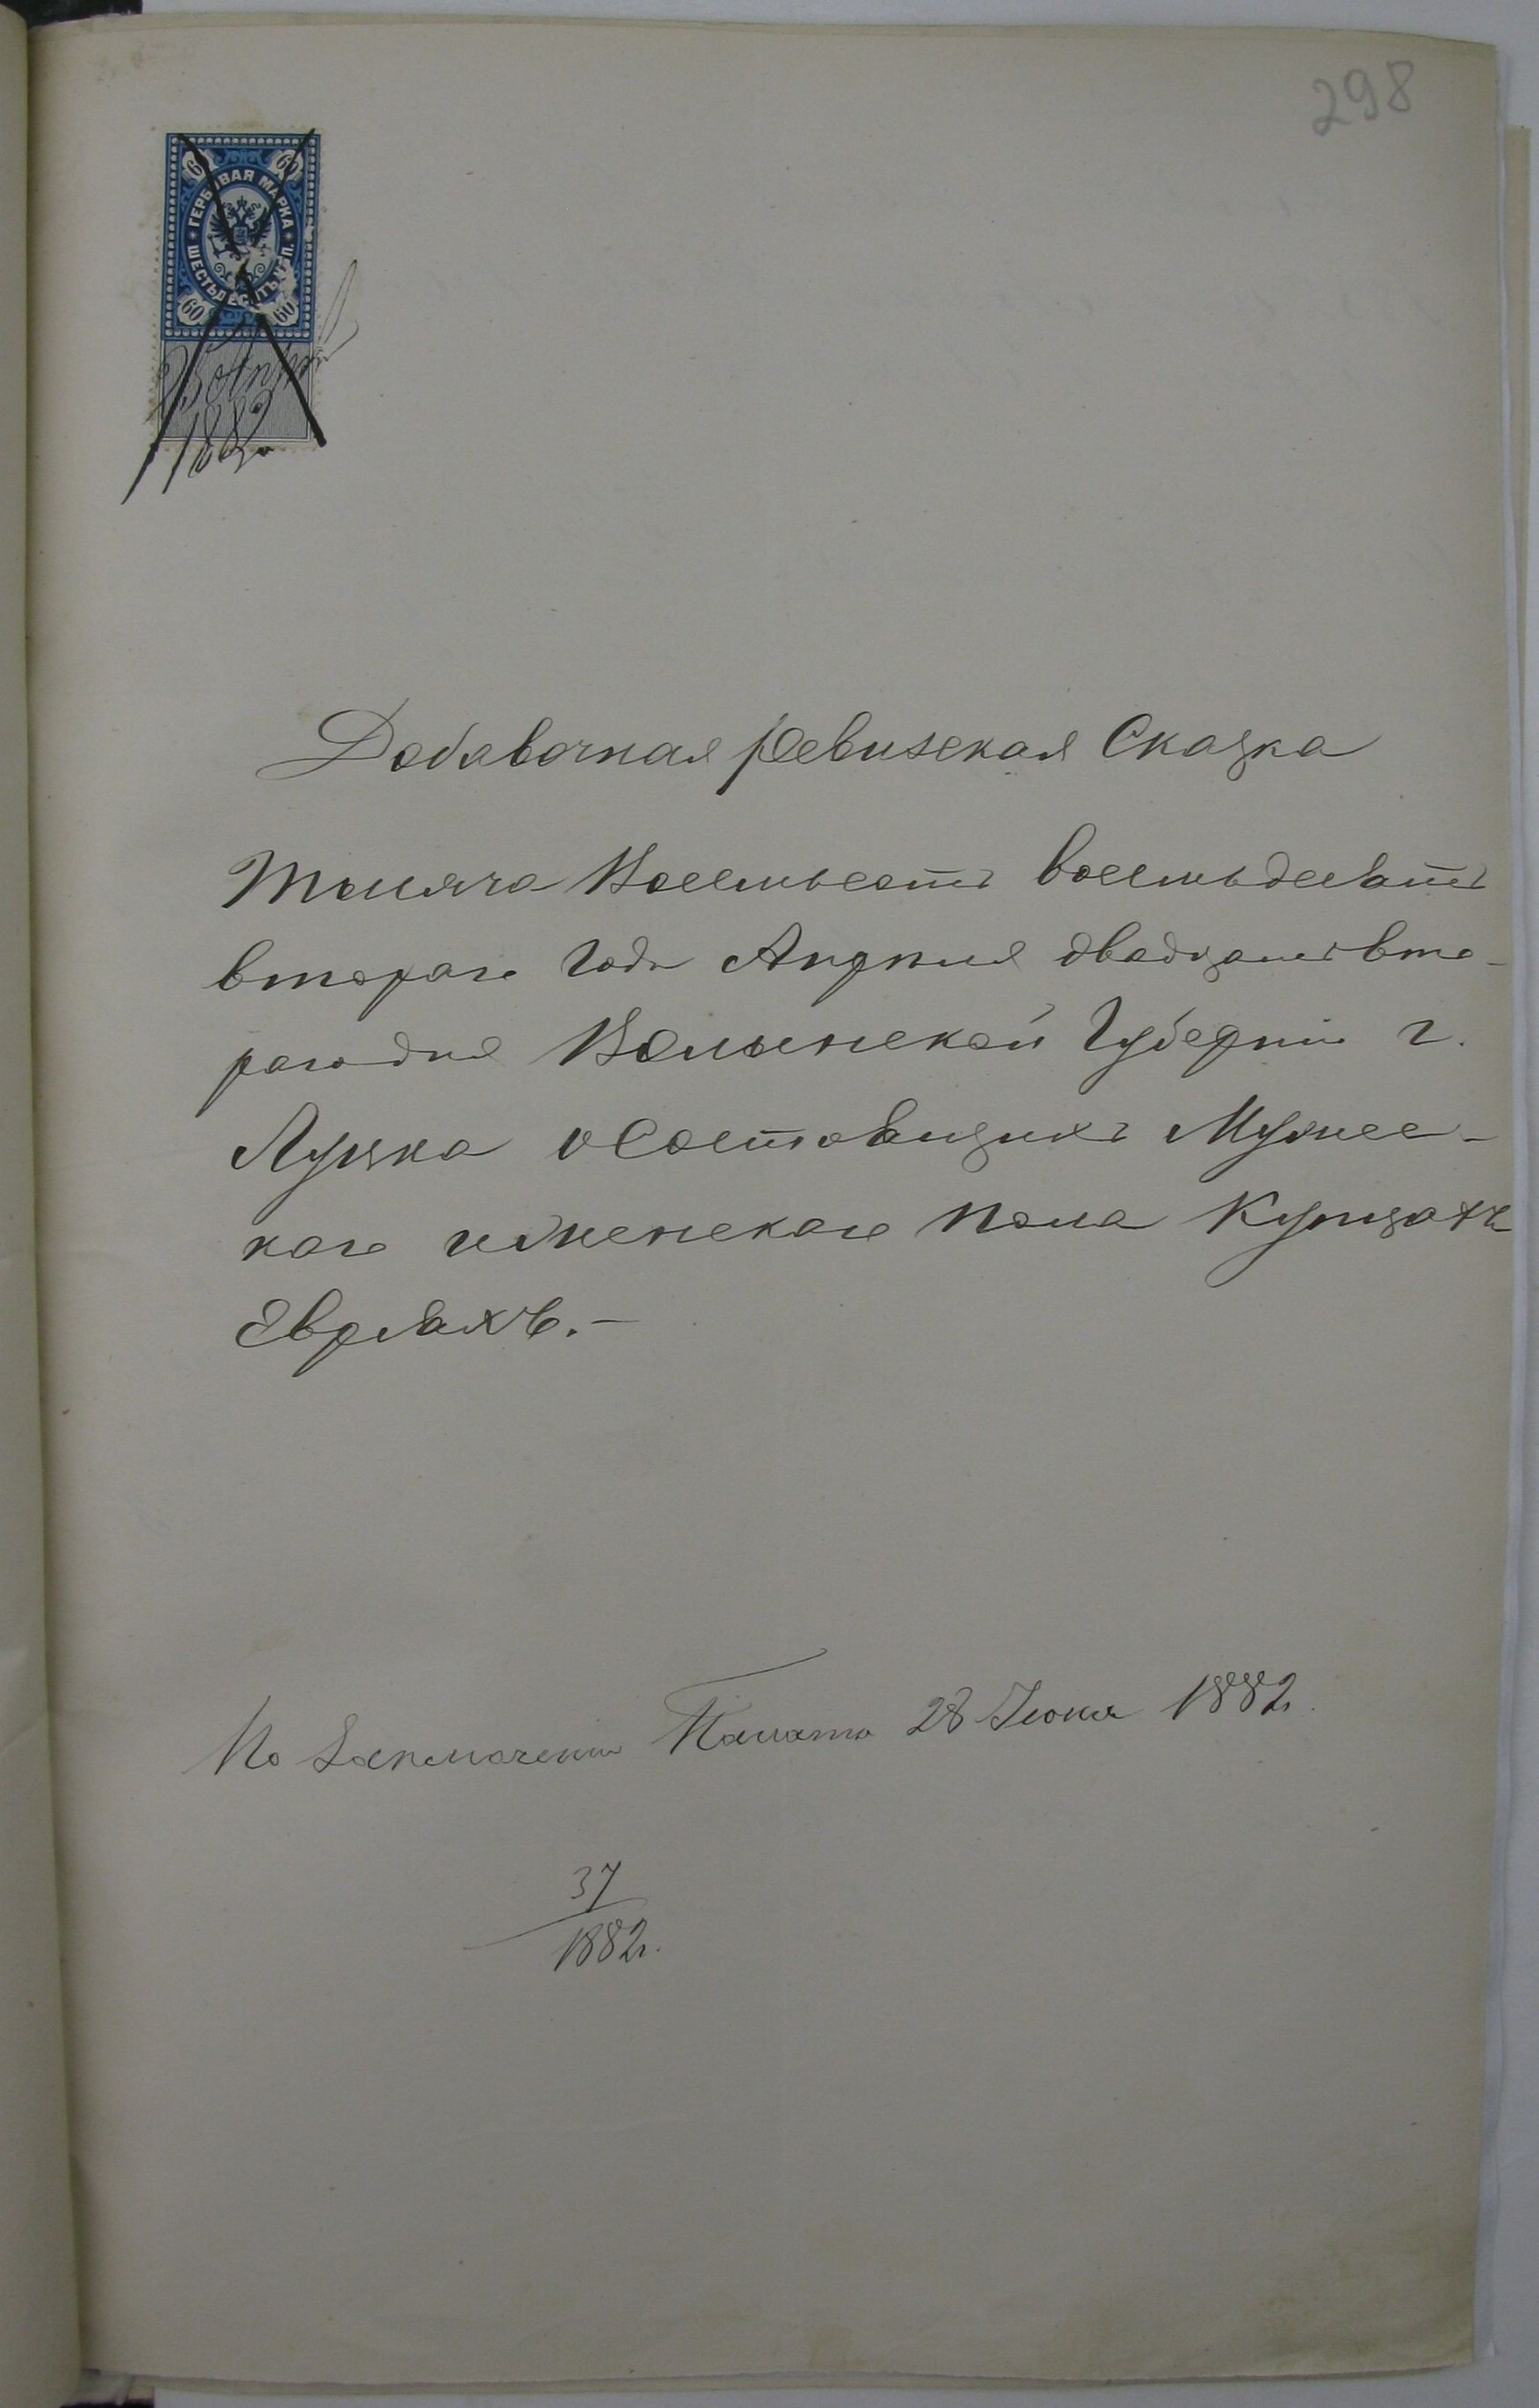 298
ГЕРБОВАЯ МАРКА
ШЕСТЬДЕСЯТЪ КОП.
60 60
60 60
1882
Добавочная ревизская Сказка
Тысяча Восемьсотъ восемьдесятъ
второго Года Апреля двадцать вто-
рого дня Волынской Губернiи г.
Луцка о Состоящихъ Мужес-
каго и женскаго пола Купцахъ
Евреяхъ.-
По Заключенiю Палаты 28 Iюня 1882г.
37
1882г.